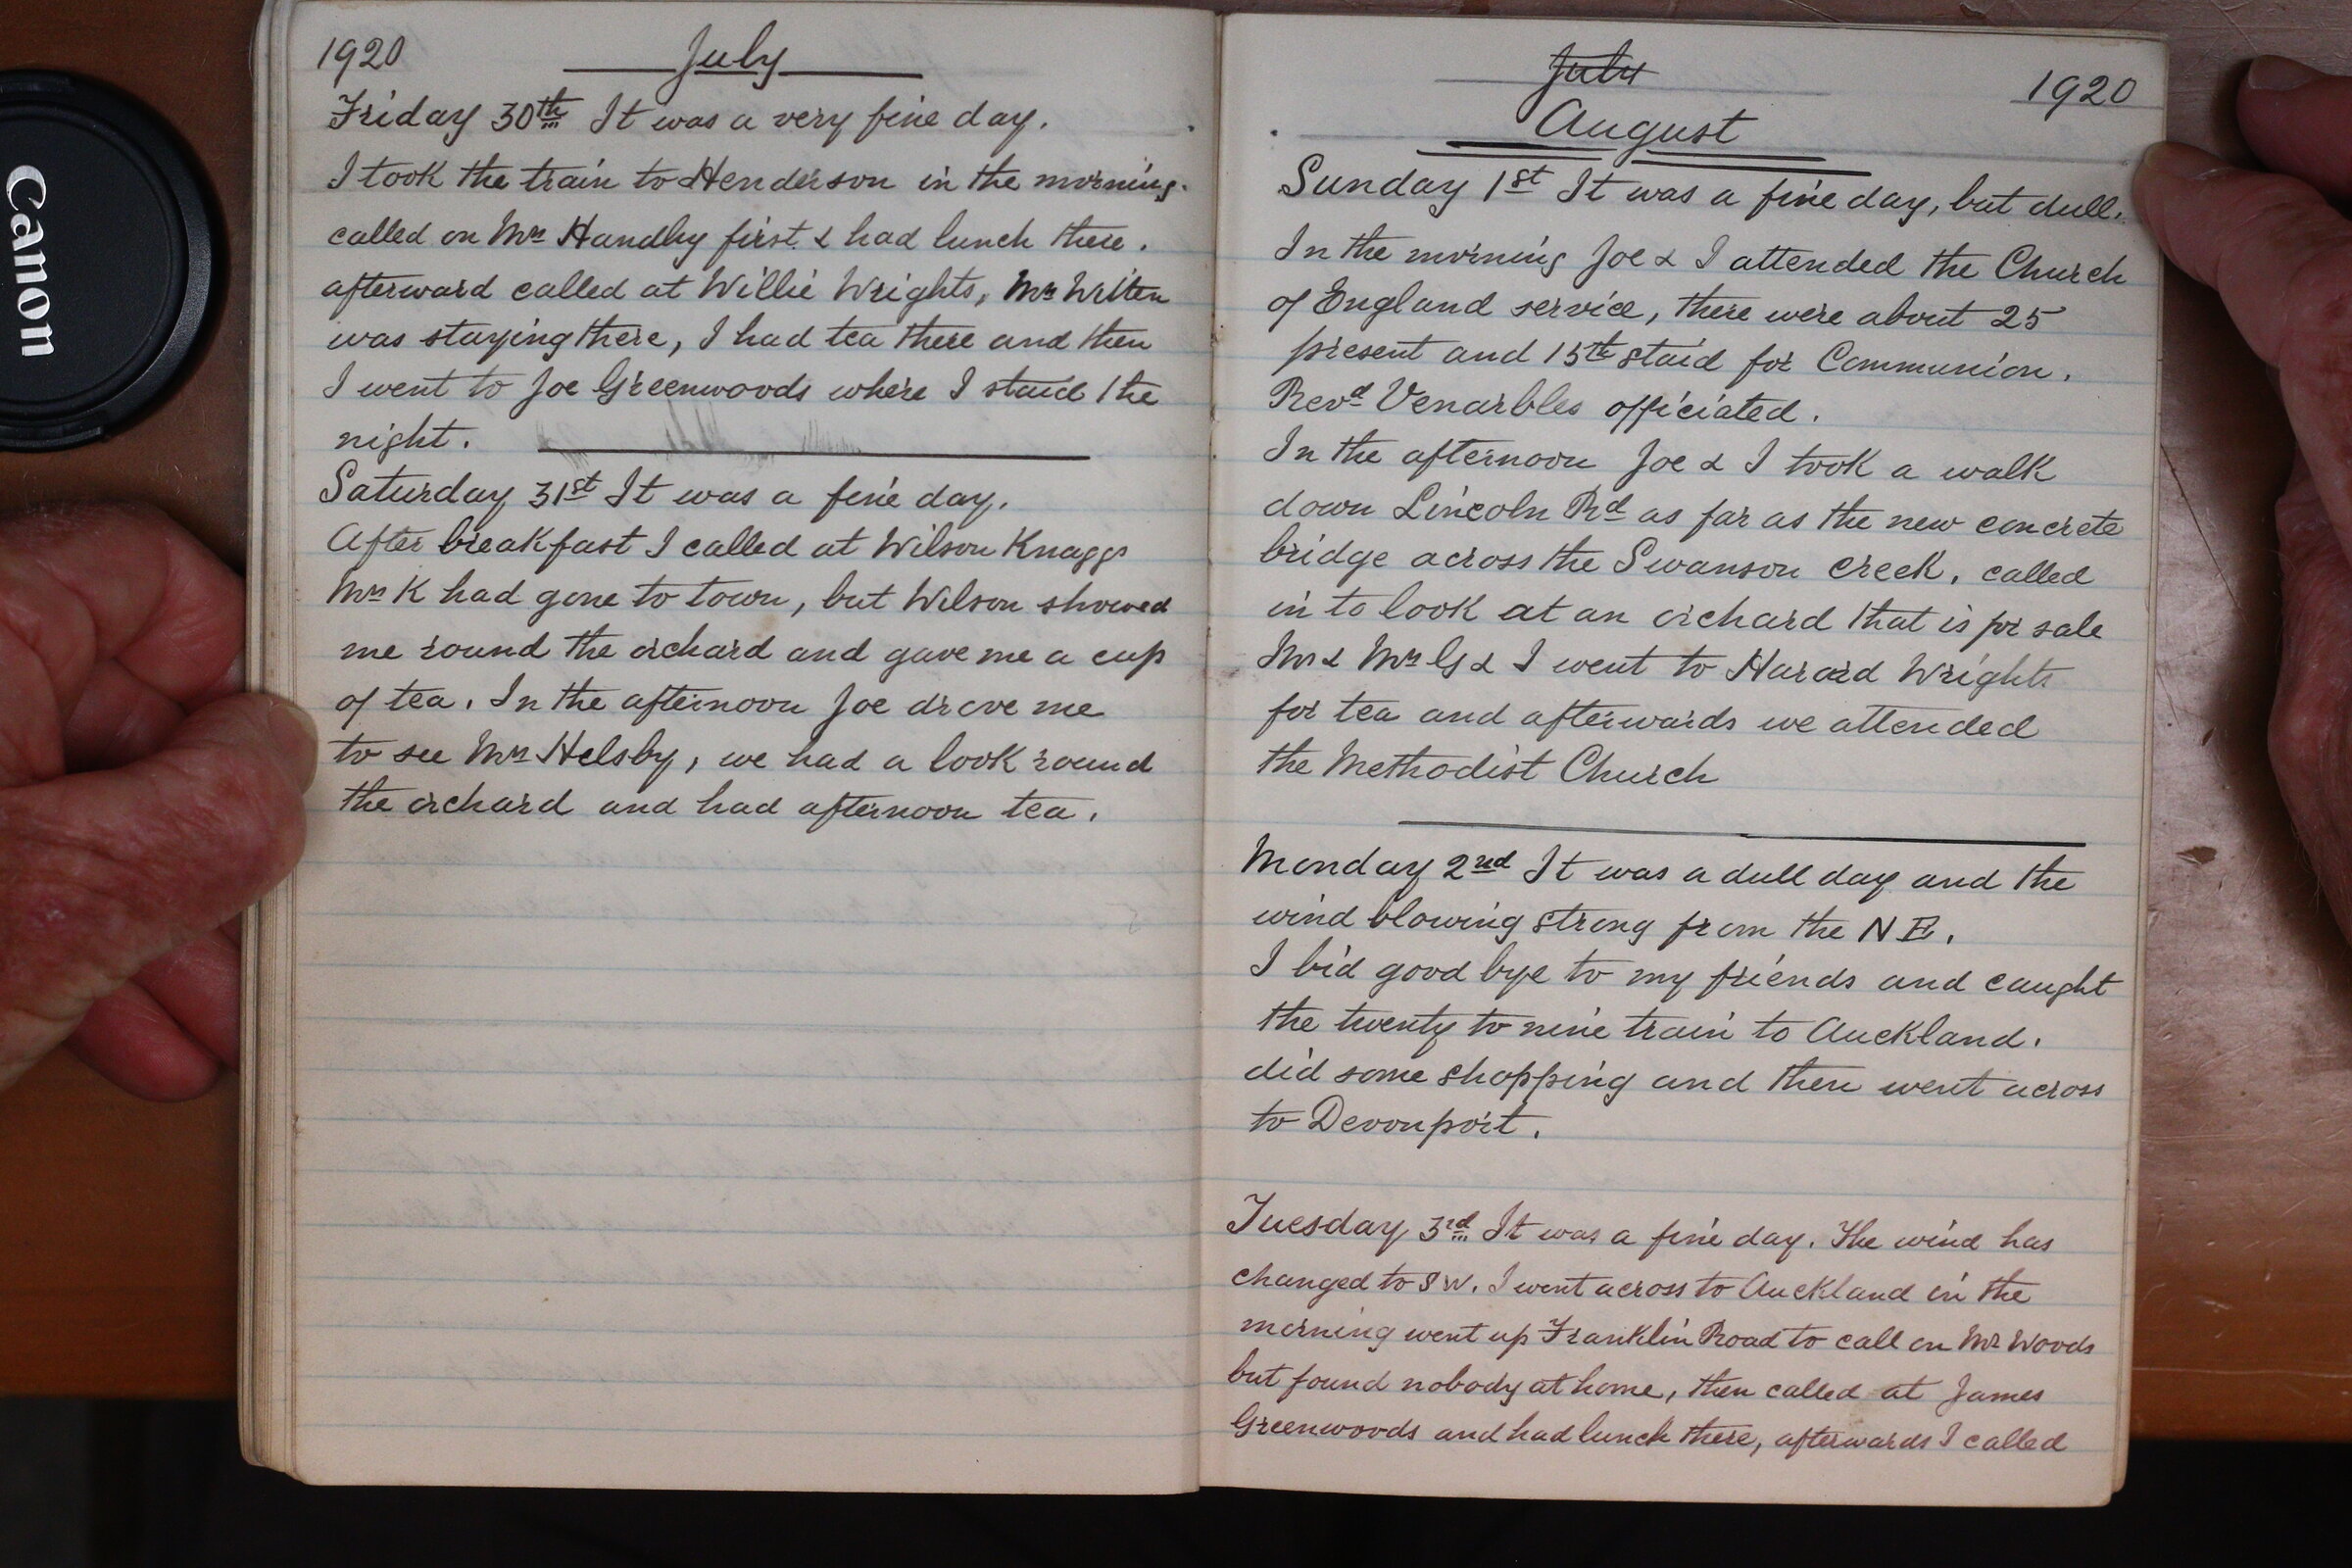 Canon
1920
July
Friday 30th It was a very fine day.
I took the train to Henderson in the morning.
called on Mrs Handby first & had lunch there.
afterward called at Willie Wrights, Mrs
was staying there, I had tea there and then
I went to Joe Greenwoods where I staid the
night.
Saturday 31st It was a fine day.
After breakfast I called at Wilson Knaggs
Mrs K had gone to town, but Wilson showed
me round the orchard and gave me a cup
of tea. In the afternoon Joe drove me
to see Mrs Helsby, we had a look round
the orchard and had afternoon tea.
July
1920
August
Sunday 1st It was a fine day, but dull.
In the morning Joe & I attended the Church
of England service, there were about 25
present and 15th staid for Communion.
Revd Venarbles officiated.
In the afternoon Joe & I took a walk
down Lincoln Rd as far as the new concrete
bridge across the Swanson creek. called
in to look at an orchard that is for sale
Mr & Mrs G & I went to Harard Wrights
for tea and afterwards we attended
the Methodist Church
Monday 2nd It was a dull day and the
wind blowing strong from the N E.
I bid good bye to my friends and caught
the twenty to nine train to Auckland.
did some shopping and then went across
to Devonport.
Tuesday 3rd It was a fine day. The wind has
changed to SW. I went across to Auckland in the
morning went up Franklin Road to call on Mr Woods
but found nobody at home, then called at James
Greenwoods and had lunch there, afterwards I called